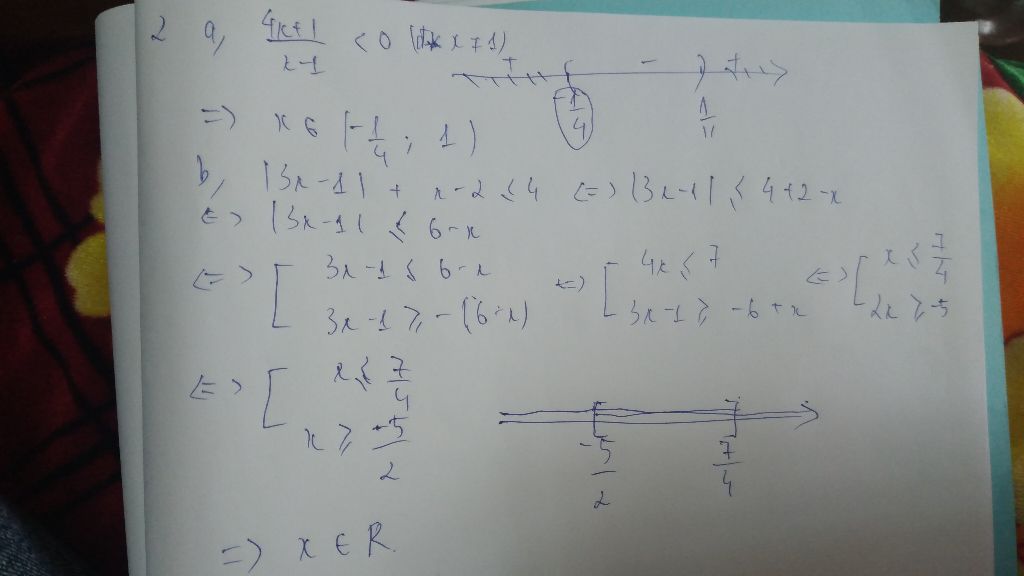 2 a, (4x+1)/(x-1) < 0 (đk x ≠ 1)
+ - +
-1/4 1
=> x ∈ (-1/4; 1)
b, |3x-1| + x-2 ≤ 4 <=> |3x-1| ≤ 4+2-x
<=> |3x-1| ≤ 6-x
<=> [ 3x-1 ≤ 6-x <=> [ 4x ≤ 7 <=> [ x ≤ 7/4
3x-1 ≥ -(6-x) 3x-1 ≥ -6+x 2x ≥ -5
<=> [ x ≤ 7/4
x ≥ -5/2
-5/2 7/4
=> x ∈ R.